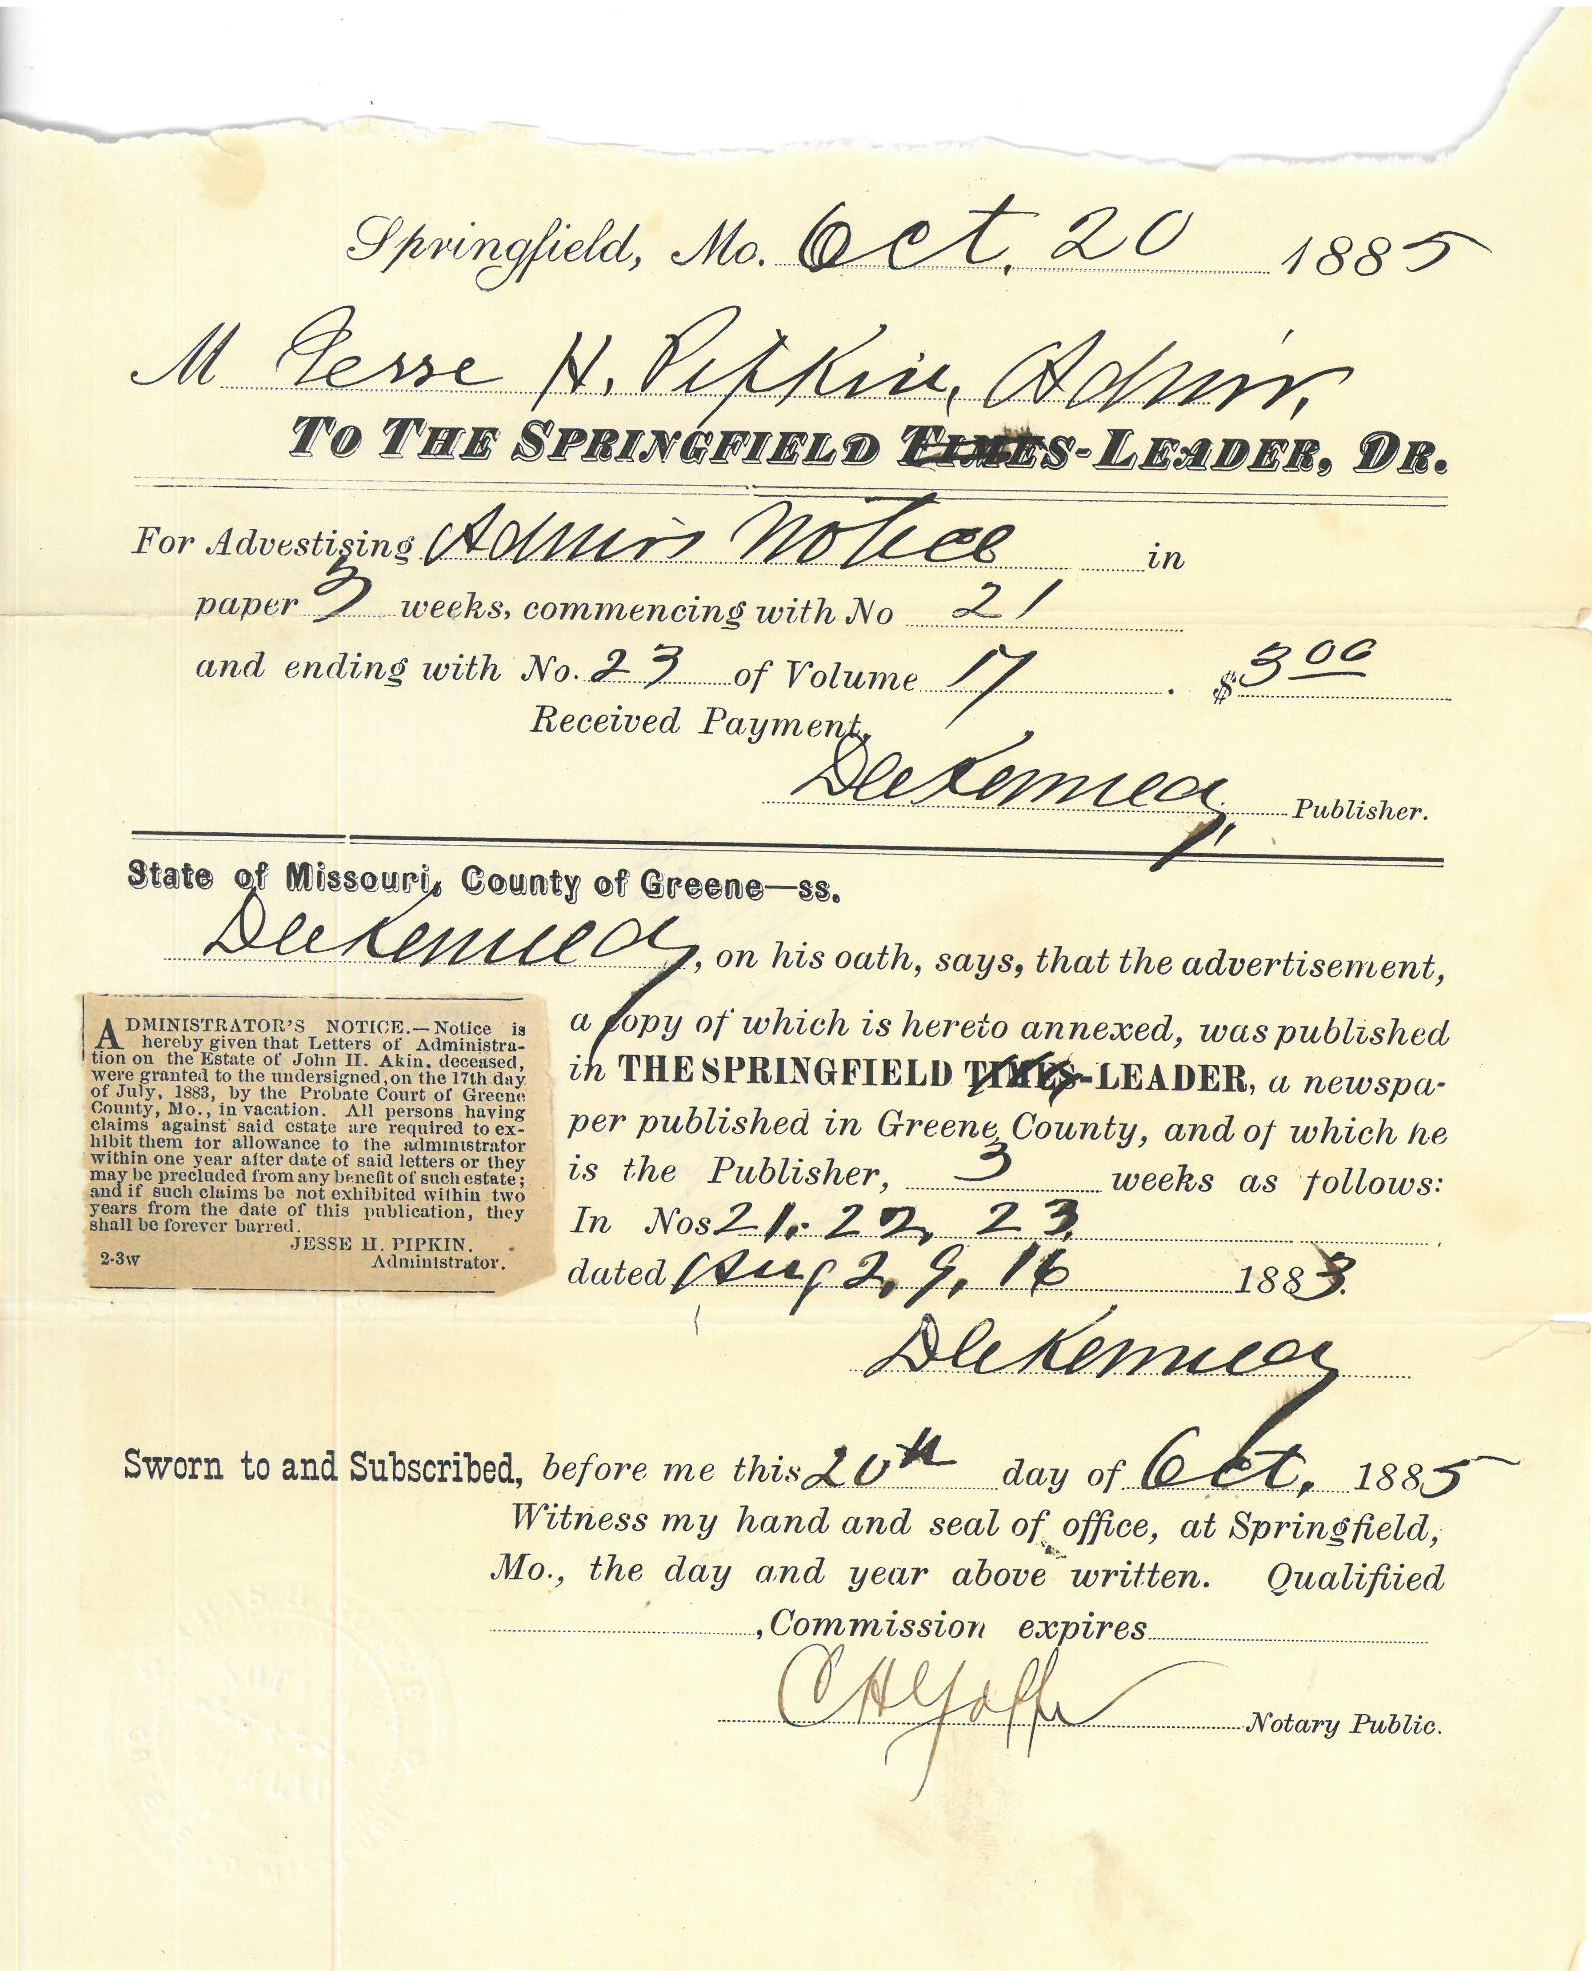 Springfield, Mo. Oct. 20 1885
M Jesse H. Pipkin, Admr.
TO THE SPRINGFIELD TIMES-LEADER, DR.
For Advestising Admrs Notice in
paper 3 weeks, commencing with No 21
and ending with No. 23 of Volume 17 . $3 00
Received Payment,
D C Kennedy Publisher.
State of Missouri, County of Greene—ss.
D C Kennedy, on his oath, says, that the advertisement,
a copy of which is hereto annexed, was published
in THE SPRINGFIELD TIMES-LEADER, a newspa-
per published in Greene County, and of which he
is the Publisher, 3 weeks as follows:
In Nos 21. 22, 23,
dated Aug 2, 9, 16 1883.
ADMINISTRATOR'S NOTICE.—Notice is
hereby given that Letters of Administra-
tion on the Estate of John H. Akin, deceased,
were granted to the undersigned, on the 17th day
of July, 1883, by the Probate Court of Greene
County, Mo., in vacation. All persons having
claims against said estate are required to ex-
hibit them for allowance to the administrator
within one year after date of said letters or they
may be precluded from any benefit of such estate;
and if such claims be not exhibited within two
years from the date of this publication, they
shall be forever barred.
JESSE H. PIPKIN.
2-3w Administrator.
D C Kennedy
Sworn to and Subscribed, before me this 20th day of Oct. 1885
Witness my hand and seal of office, at Springfield,
Mo., the day and year above written. Qualifiied
, Commission expires
C H Notary Public.